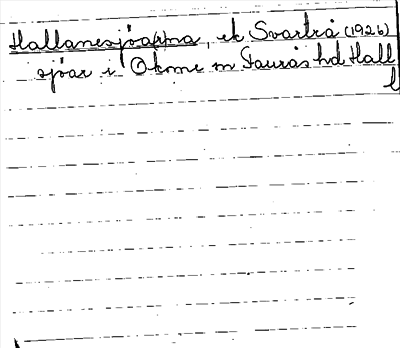 Hallanesjöarna, ek Svartrå (1926)
sjöar i Okome sn Faurås hd Hall
l